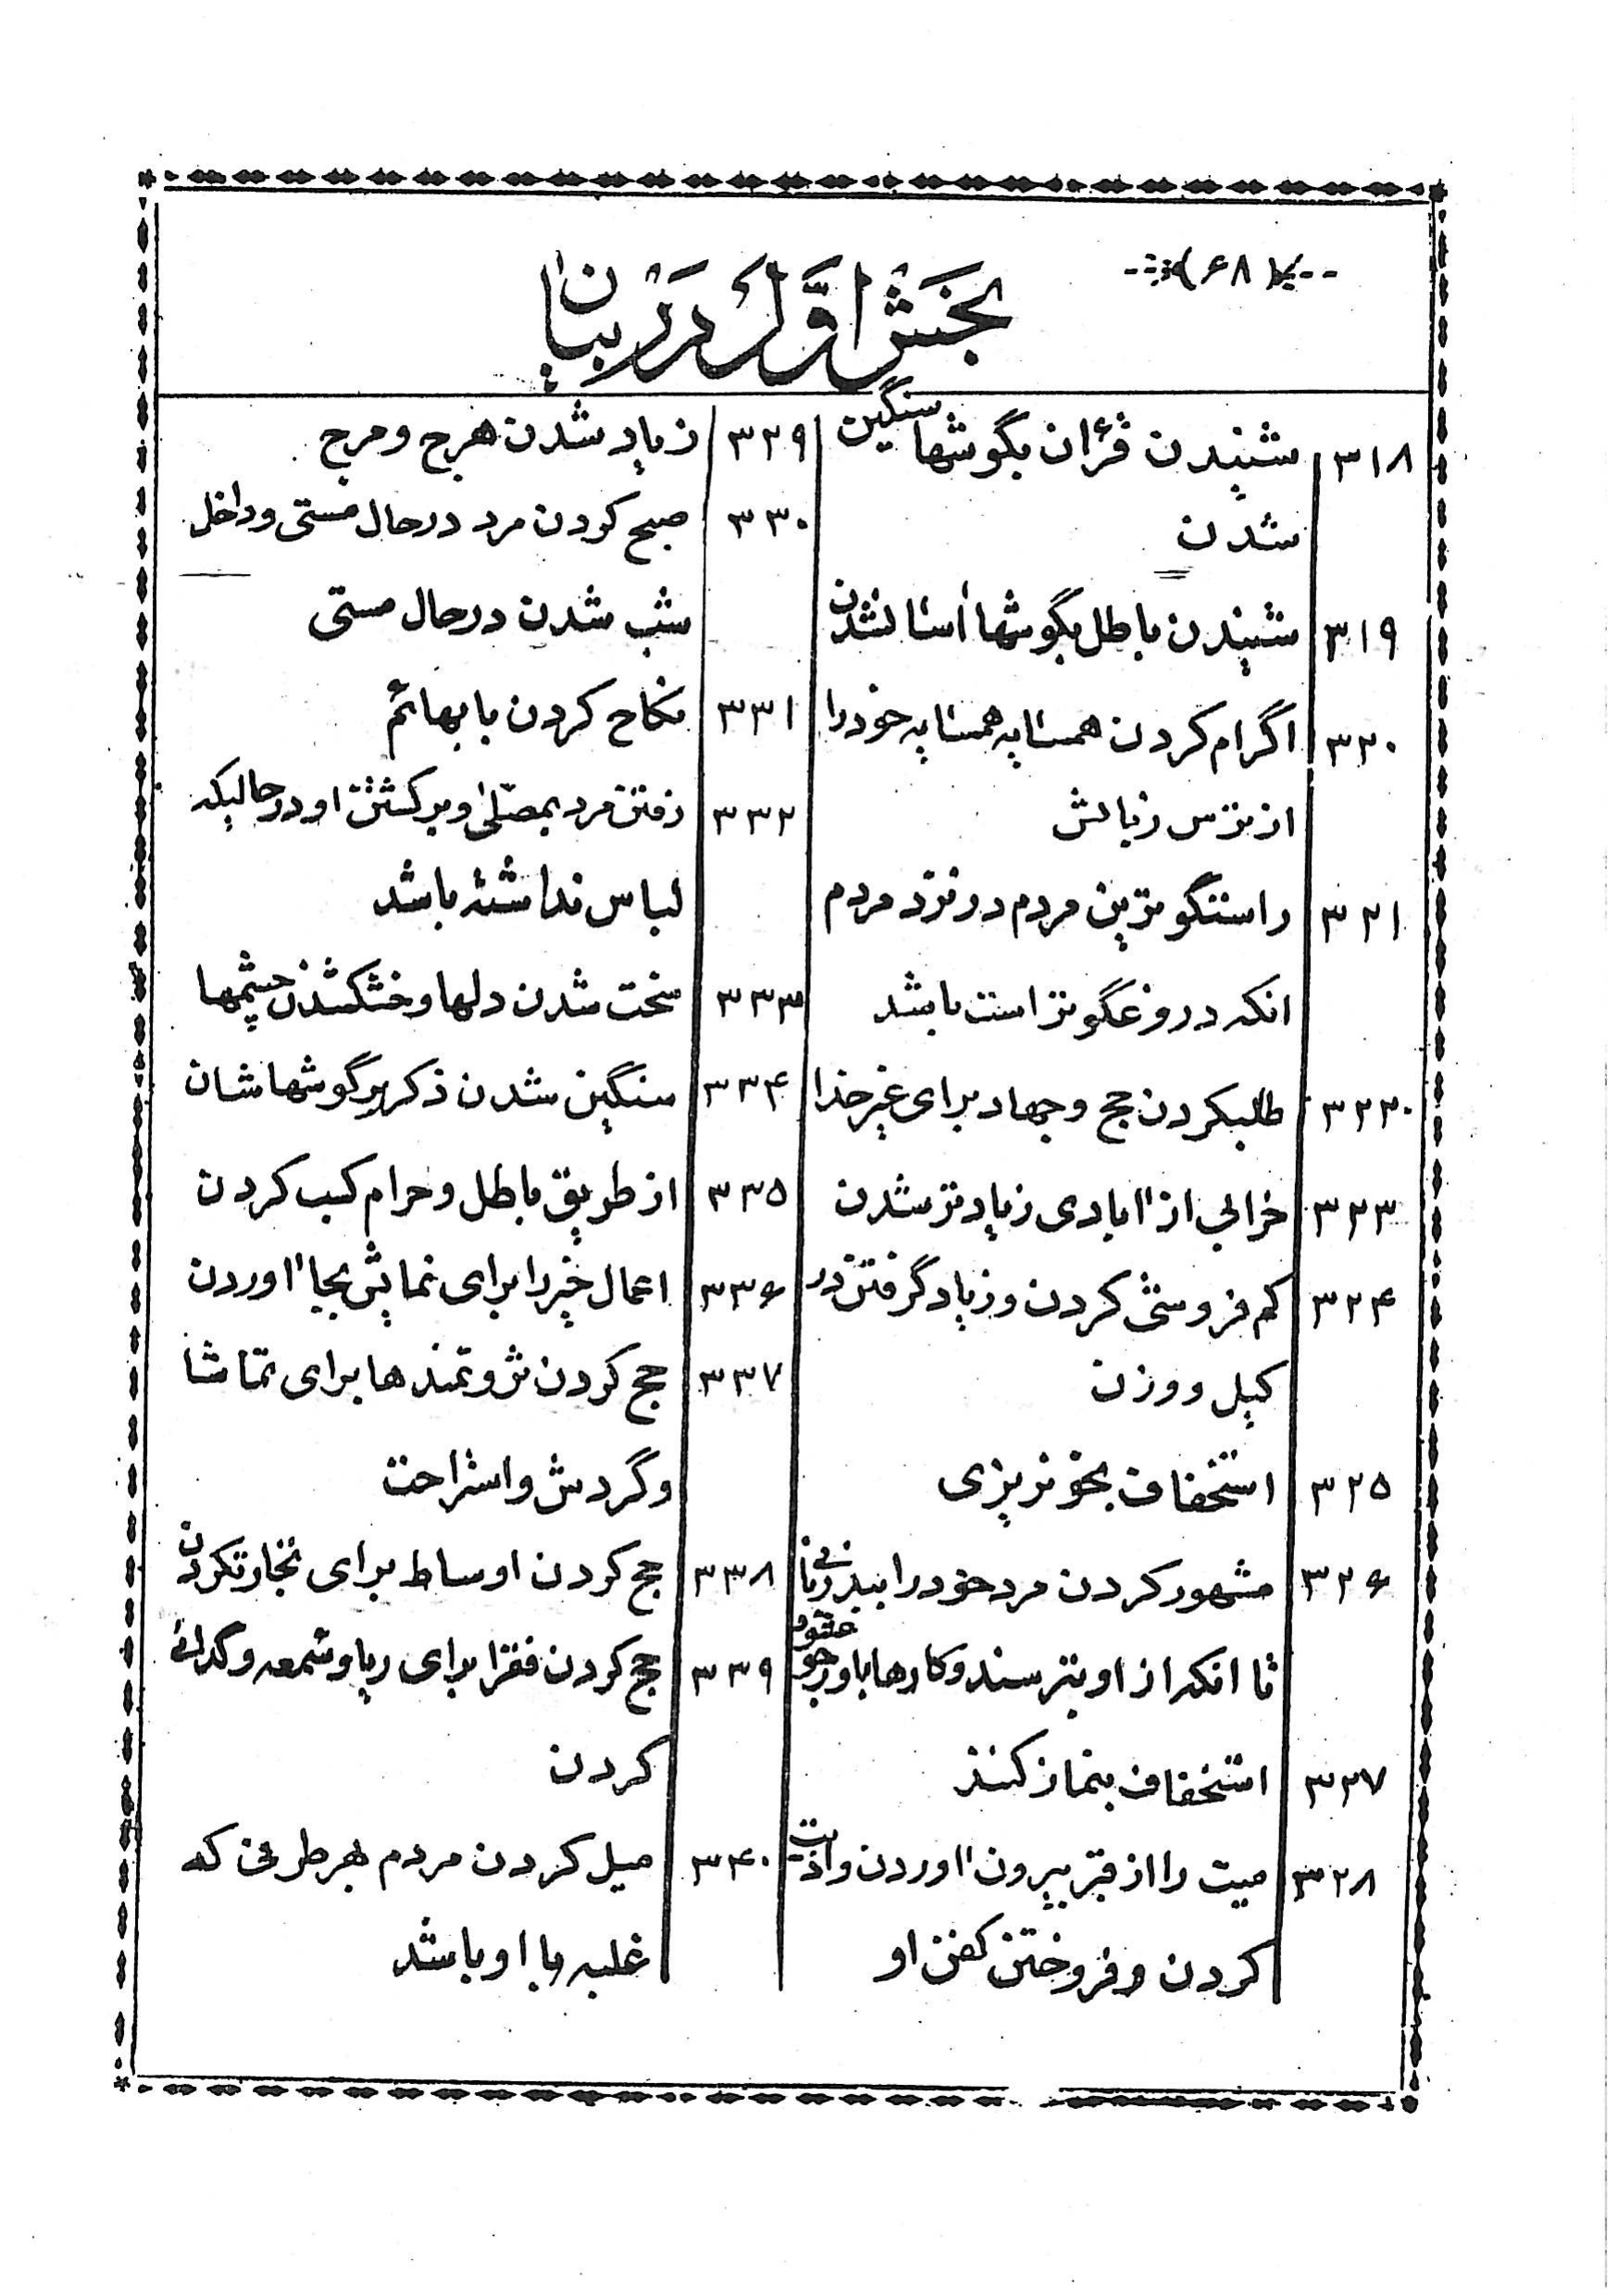 ۶۸
بخش اول در بیان
۳۱۸ شنیدن قرآن بگوشها سنگین
شدن
۳۱۹ شنیدن باطل بگوشها آسان شدن
۳۲۰ اکرام کردن همسایه همسایه خود را
از ترس زبانش
۳۲۱ راستگوترین مردم در نزد مردم
آنکه دروغگوتر است باشد
۳۲۲ طلب کردن حج و جهاد برای غیر خدا
۳۲۳ خرابی از آبادی زیادتر شدن
۳۲۴ کم فروشی کردن و زیاد گرفتن در
کیل و وزن
۳۲۵ استخفاف بخونریزی
۳۲۶ مشهور کردن مرد خود را ببدزبانی
تا آنکه از او بترسند و کارها باو رجوع شود
۳۲۷ استخفاف بنماز کنند
۳۲۸ میت را از قبر بیرون آوردن و اذیت
کردن و فروختن کفن او
۳۳۹ زیاد شدن هرج و مرج
۳۳۰ صبح کردن مرد در حال مستی و داخل
شب شدن در حال مستی
۳۳۱ نکاح کردن با بهائم
۳۳۲ رفتن مرد بمصلی و برگشتن او در حالیکه
لباس نداشته باشد
۳۳۳ سخت شدن دلها و خشک شدن چشمها
۳۳۴ سنگین شدن ذکر بر گوشهاشان
۳۳۵ از طریق باطل و حرام کسب کردن
۳۳۶ اعمال خیر را برای نمایش بجا آوردن
۳۳۷ حج کردن ثروتمندها برای تماشا
و گردش و استراحت
۳۳۸ حج کردن اوساط برای تجارت کردن
۳۳۹ حج کردن فقرا برای ریا و سمعه و گدائی
کردن
۳۴۰ میل کردن مردم بهر طرفی که
غلبه با او باشد